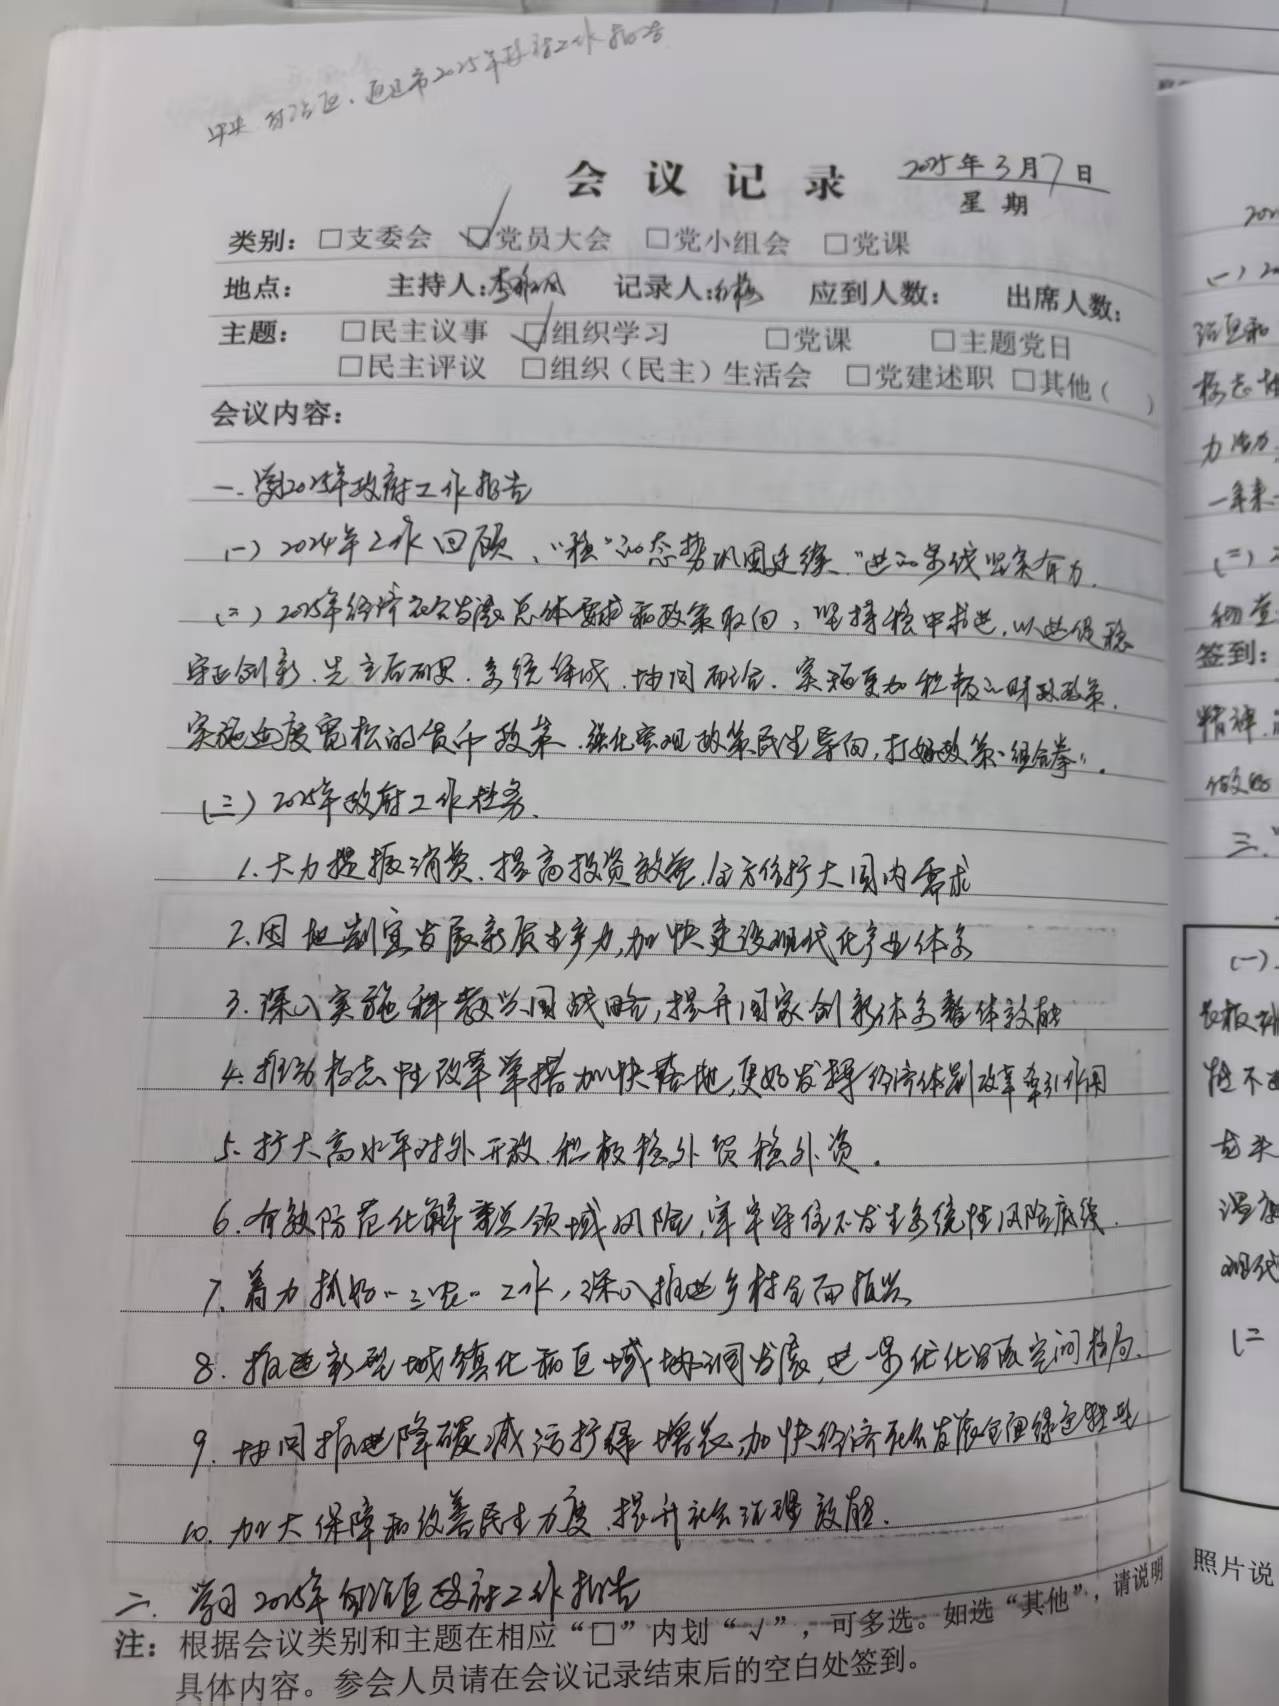 中央、自治区、百色市2025年政府工作报告
会议记录
2025年3月7日
星期
类别：□支委会 ☑党员大会 □党小组会 □党课
地点： 主持人： 记录人： 应到人数： 出席人数：
主题： □民主议事 ☑组织学习 □党课 □主题党日
□民主评议 □组织（民主）生活会 □党建述职 □其他（ ）
会议内容：
一、学习2025年政府工作报告
(一) 2024年工作回顾、“稳”的态势巩固延续、“进”的步伐坚实有力.
(二) 2025年经济社会发展总体要求和政策取向、坚持稳中求进、以进促稳
守正创新、先立后破、系统集成、协同配合、实施更加积极的财政政策、
实施适度宽松的货币政策、强化宏观政策民生导向，打好政策“组合拳”.
(三) 2025年政府工作任务、
1.大力提振消费、提高投资效益、全方位扩大国内需求
2.因地制宜发展新质生产力，加快建设现代化产业体系
3.深入实施科教兴国战略，提升国家创新体系整体效能
4.推动标志性改革举措加快落地，更好发挥经济体制改革牵引作用
5.扩大高水平对外开放、积极稳外贸稳外资.
6.有效防范化解重点领域风险，牢牢守住不发生系统性风险底线.
7.着力抓好“三农”工作，深入推进乡村全面振兴
8.推进新型城镇化和区域协调发展，进一步优化发展空间格局.
9.协同推进降碳减污扩绿增长，加快经济社会发展全面绿色转型
10.加大保障和改善民生力度、提升社会治理效能.
二、学习2025年自治区政府工作报告
注：根据会议类别和主题在相应“□”内划“√”，可多选。如选“其他”，请说明
具体内容。参会人员请在会议记录结束后的空白处签到。
签到：
照片说